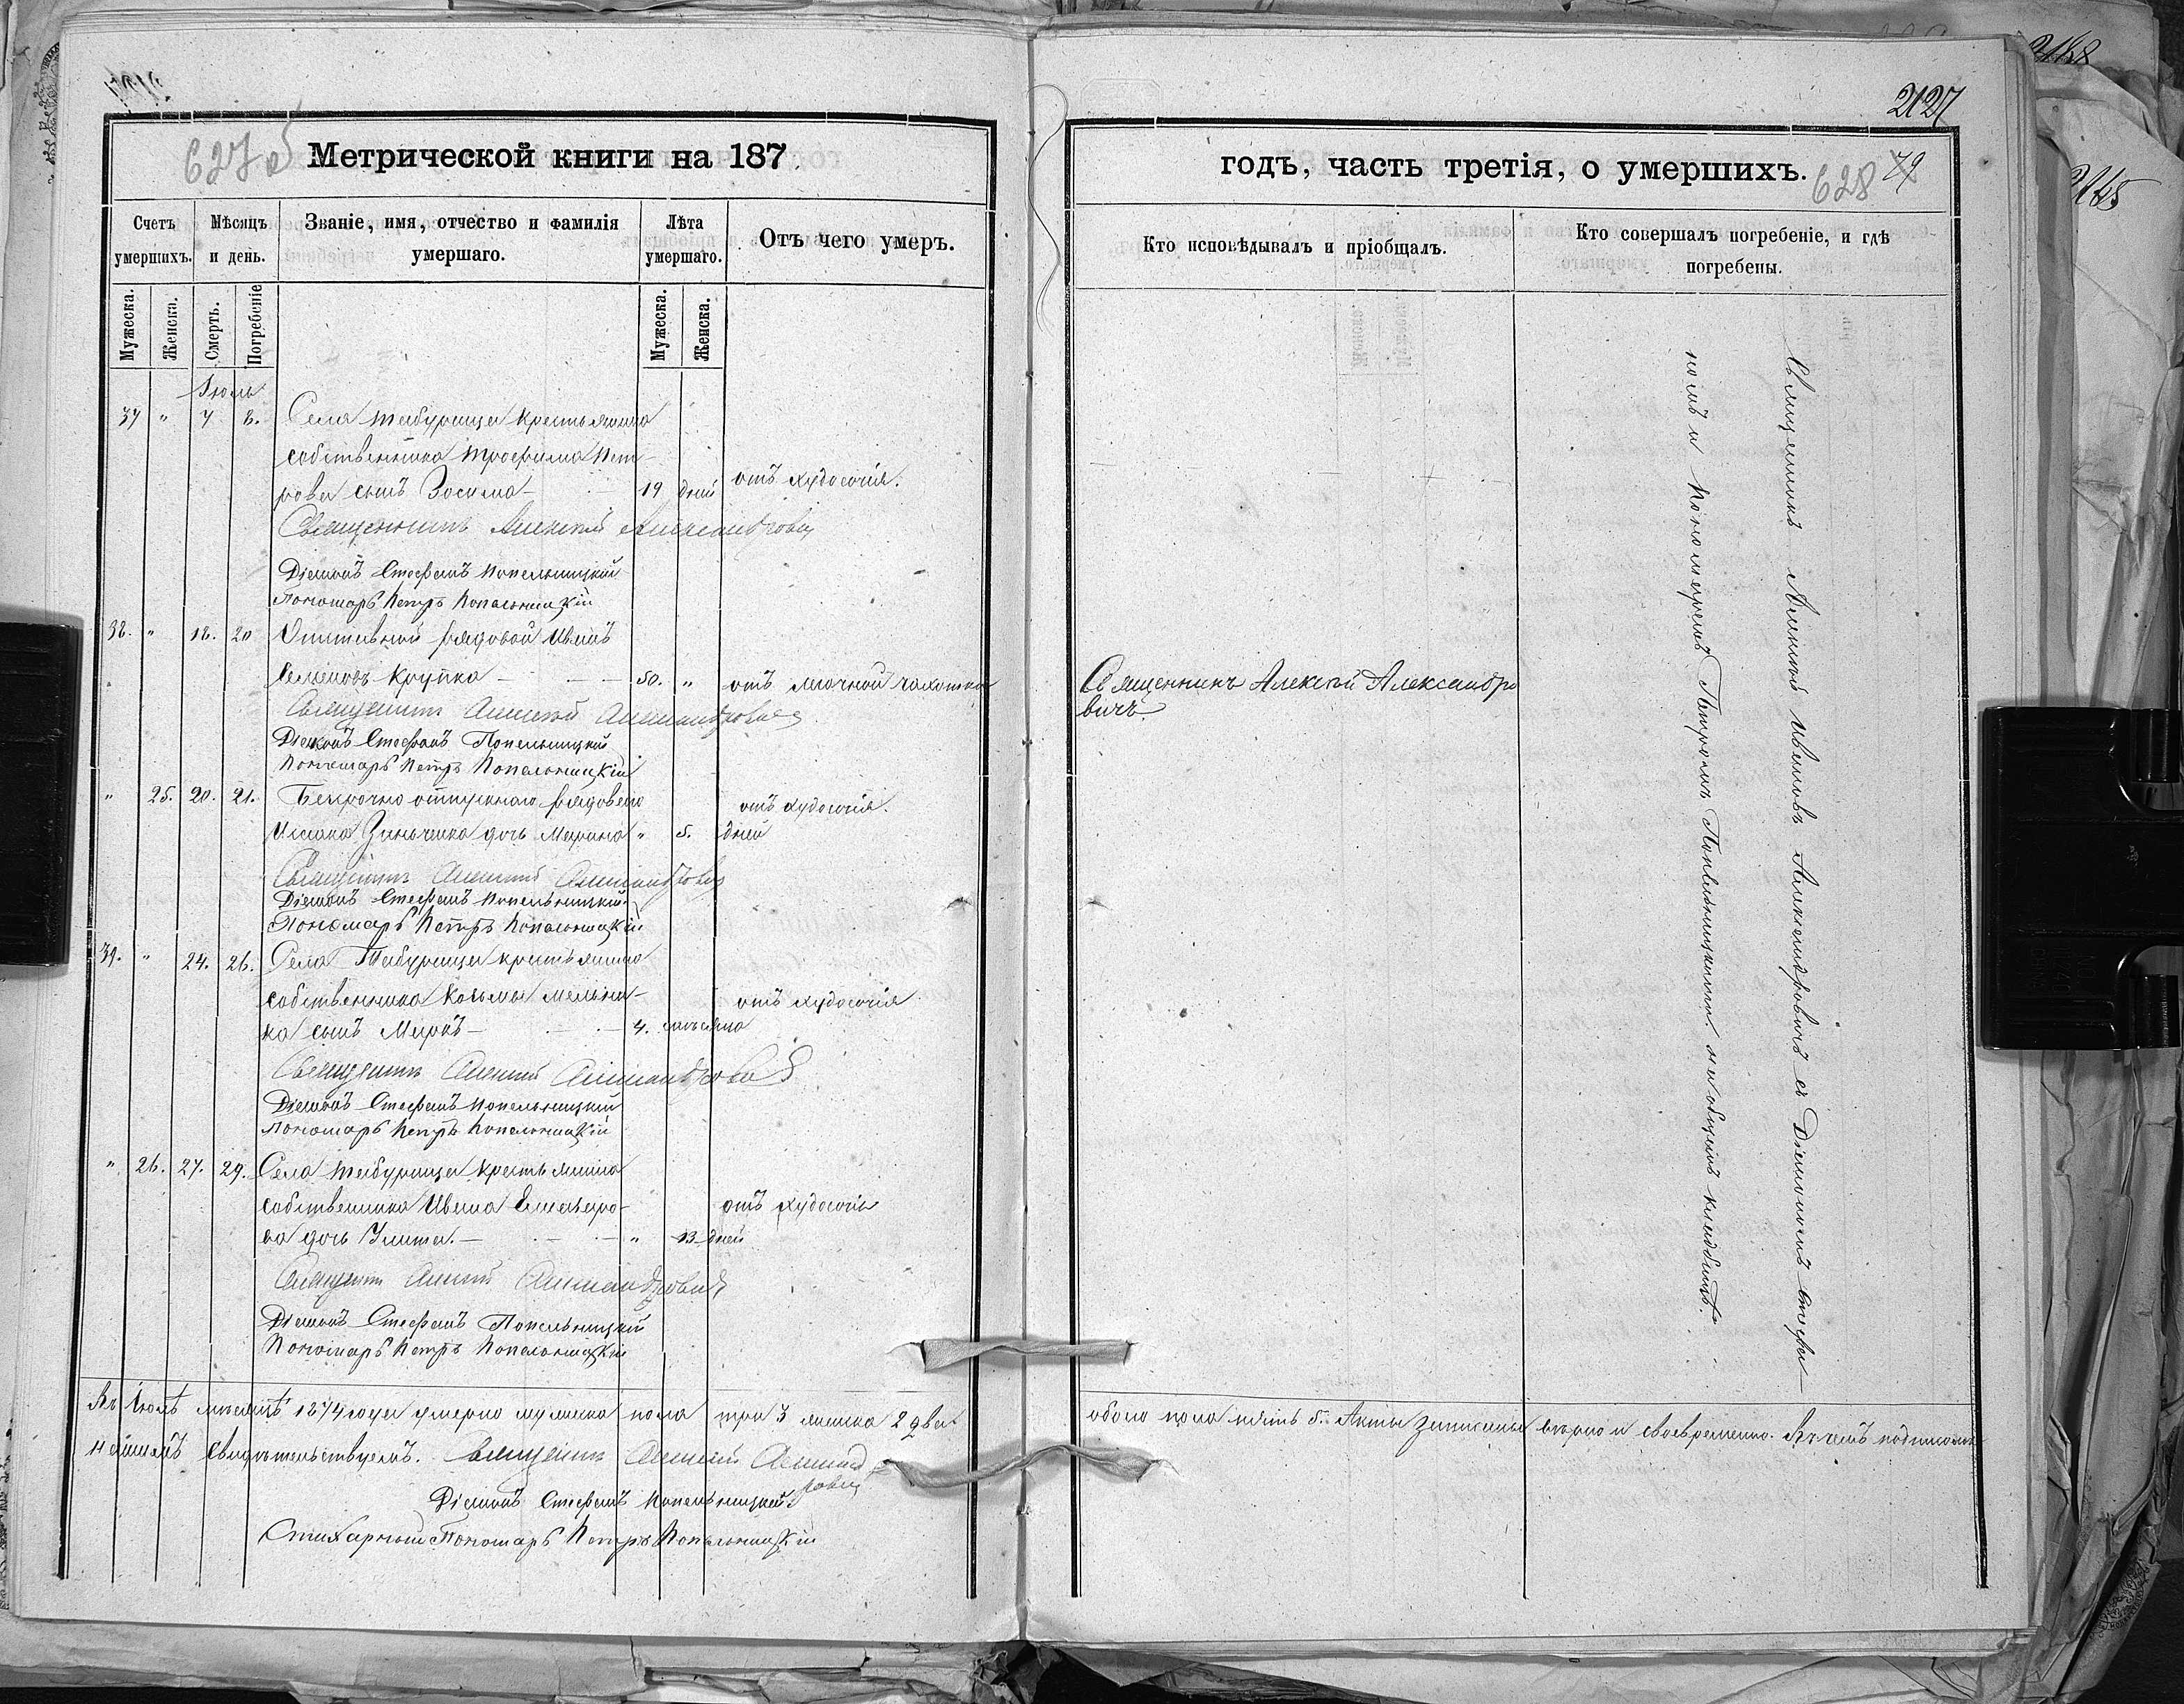 2127
627 об
Метрической книги на 187
годъ, часть третія, о умершихъ.
628
79
2188
2165
Счетъ умершихъ.
Мѣсяцъ и день.
Званіе, имя, отчество и фамилія умершаго.
Лѣта умершаго.
Отъ чего умеръ.
Кто исповѣдывалъ и пріобщалъ.
Кто совершалъ погребеніе, и гдѣ погребены.
Мужеска.
Женска.
Смерть.
Погребеніе
Мужеска.
Женска.
Іюль
37 " 7 8. Села Табурища крестьянина
собственника Трофима Пет-
рова сынъ Зосима — 19 дней отъ худосочія.
Священникъ Алексій Александровичъ
Діаконъ Стефанъ Попельницкій
Пономарь Петръ Попельницкій
38. " 18. 20 Отставной рядовой Иванъ
Семеновъ Крупка — 50. " отъ легочной чахотки
Священникъ Алексій Александро
вичъ.
Священникъ Алексій Александровичъ
Діаконъ Стефанъ Попельницкій
Пономарь Петръ Попельницкій
" 25. 20. 21. Безсрочно отпускнаго рядоваго
Исаака Зинченка дочь Марина " 5. дней отъ худосочія.
Священникъ Алексій Александровичъ
Діаконъ Стефанъ Попельницкій
Пономарь Петръ Попельницкій
39. " 24. 26. Села Табурища крестьянина
собственника Косьмы Мельни-
ка сынъ Миронъ — 4. мѣсяца отъ худосочія
Священникъ Алексій Александровичъ
Діаконъ Стефанъ Попельницкій
Пономарь Петръ Попельницкій
" 26. 27. 29. Села Табурища крестьянина
собственника Ивана
ва дочь Улита. — " 13 дней отъ худосочія
Священникъ Алексій Александровичъ
Діаконъ Стефанъ Попельницкій
Пономарь Петръ Попельницкій
Священникъ Алексій Ивановъ Александровичъ съ Діакономъ Стефа-
номъ и Пономаремъ Петромъ Попельницкими. на общемъ кладбищѣ.
Въ Іюлѣ мѣсяцѣ 1874 года умерло мужеска пола три 3 женска 2 два обоего пола пять 5. Акты записаны вѣрно и своевременно. Въ чемъ подписомъ
нашимъ свидѣтельствуемъ. Священникъ Алексій Александ
ровичъ
Діаконъ Стефанъ Попельницкій
Стихарный Пономарь Петръ Попельницкій